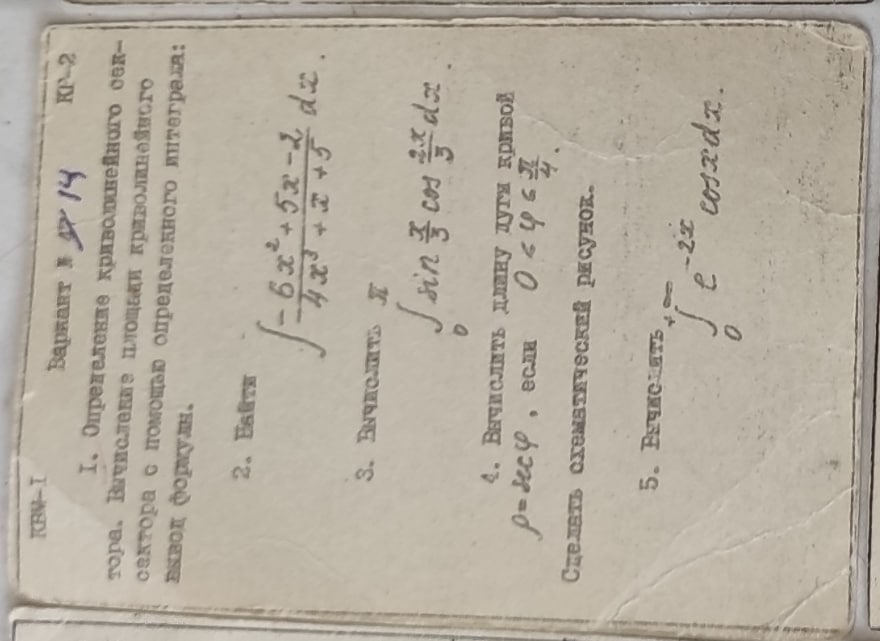 КВМ-I Вариант № 14 КР-2
I. Определение криволинейного сек-
тора. Вычисление площади криволинейного
сектора с помощью определенного интеграла:
вывод формулы.
2. Найти
∫ (-6x² + 5x - 2)/(4x³ + x + 5) dx.
3. Вычислить
∫₀^π sin x/3 cos 2x/3 dx.
4. Вычислить длину дуги кривой
ρ = sec φ, если 0 ≤ φ ≤ π/4.
Сделать схематический рисунок.
5. Вычислить
∫₀^{+∞} e^{-2x} cos x dx.